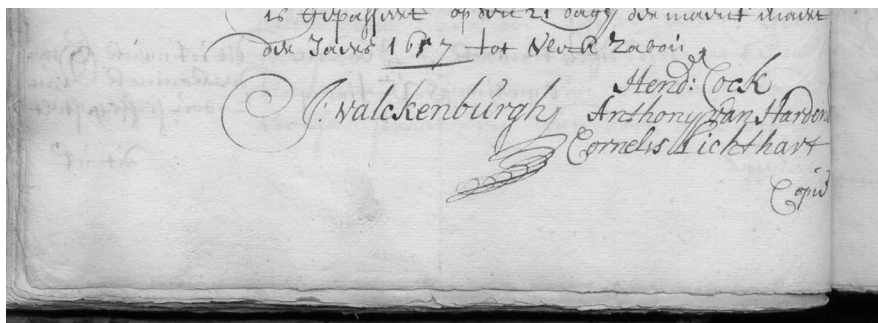 is gepasseert op den 21 dagh der maent maert
des Jaers 1657 tot
J: Valckenburgh Hend: Cock
Anthony van Harden
Cornelis Lichthart
Copia